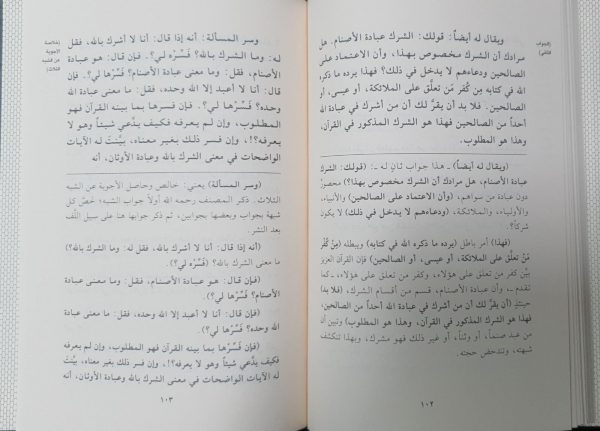 (الجواب
الثاني)
ويقال له أيضاً: قولك: الشرك عبادة الأصنام. هل
مرادك أن الشرك مخصوص بهذا، وأن الاعتماد على
الصالحين ودعاءهم لا يدخل في ذلك؟ فهذا يرده ما ذكر
الله في كتابه من كُفر مَن تعلَّق على الملائكة، أو عيسى، أو
الصالحين. فلا بد أن يقرَّ لك أن من أشرك في عبادة الله
أحداً من الصالحين فهذا هو الشرك المذكور في القرآن.
وهذا هو المطلوب.
(ويقال له أيضاً) ـ هذا جواب ثانٍ له ـ: (قولك: الشرك
عبادة الأصنام، هل مرادك أن الشرك مخصوص بهذا؟) محصور
دون عبادة من سواهم، (وأن الاعتماد على الصالحين) والأنبياء،
والأولياء، والملائكة، (ودعاءهم لا يدخل في ذلك) لا يكون
شركاً؟.
(فهذا) أمر باطل (يرده ما ذكره الله في كتابه) ويبطله (مِن كُفْر
مَنْ تعلَّق على الملائكة، أو عيسى، أو الصالحين) فإن القرآن العزيز
بيَّن كفر من تعلق على هؤلاء، وكفر من تعلق على هؤلاء، ـ كما
تقدم ـ، وأن عبادة الأصنام، قسم من أقسام الشرك، (فلا بد)
حينئذٍ (أن يقرَّ لك أن من أشرك في عبادة الله أحداً من الصالحين،
فهذا هو الشرك المذكور في القرآن، وهذا هو المطلوب) وتبين أن
من عبد صنماً، أو وثناً، أو غير ذلك فهو مشرك، وبهذا تنكشف
شبهته، وتندحض حجته.
١٠٢
(خلاصة
الأجوبة
عن الشبه
الثلاث)
وسر المسألة: أنه إذا قال: أنا لا أشرك بالله، فقل
له: وما الشرك بالله؟ فسِّرْه لي؟. فإن قال: هو عبادة
الأصنام، فقل: وما معنى عبادة الأصنام؟ فسِّرْها لي؟. فإن
قال: أنا لا أعبد إلا الله وحده، فقل: ما معنى عبادة الله
وحده؟ فسِّرْها لي؟. فإن فسرها بما بينه القرآن فهو
المطلوب، وإن لم يعرفه فكيف يدَّعي شيئاً وهو لا
يعرفه؟!، وإن فسر ذلك بغير معناه، بيَّنتَ له الآيات
الواضحات في معنى الشرك بالله وعبادة الأوثان، أنه
(وسر المسألة) يعني: خالص وحاصل الأجوبة عن الشبه
الثلاث. ذكر المصنف رحمه الله أولاً جواب الشبه؛ خصّ كل
شبهة بجواب وبعضها بجوابين، ثم ذكر جوابها هنا على سبيل اللّف
بعد النشر.
(أنه إذا قال: أنا لا أشرك بالله، فقل له: وما الشرك بالله؟)
ما معنى الشرك بالله؟ (فَسِّرْه لي؟).
(فإن قال: هو عبادة الأصنام، فقل: وما معنى عبادة
الأصنام؟ فَسِّرْها لي؟).
(فإن قال: أنا لا أعبد إلا الله وحده، فقل: ما معنى عبادة
الله وحده؟ فَسِّرْها لي؟).
(فإن فَسَّرها بما بينه القرآن فهو المطلوب، وإن لم يعرفه
فكيف يدَّعي شيئاً وهو لا يعرفه؟!، وإن فسر ذلك بغير معناه، بيَّنْتَ
له الآيات الواضحات في معنى الشرك بالله وعبادة الأوثان، أنه
١٠٣